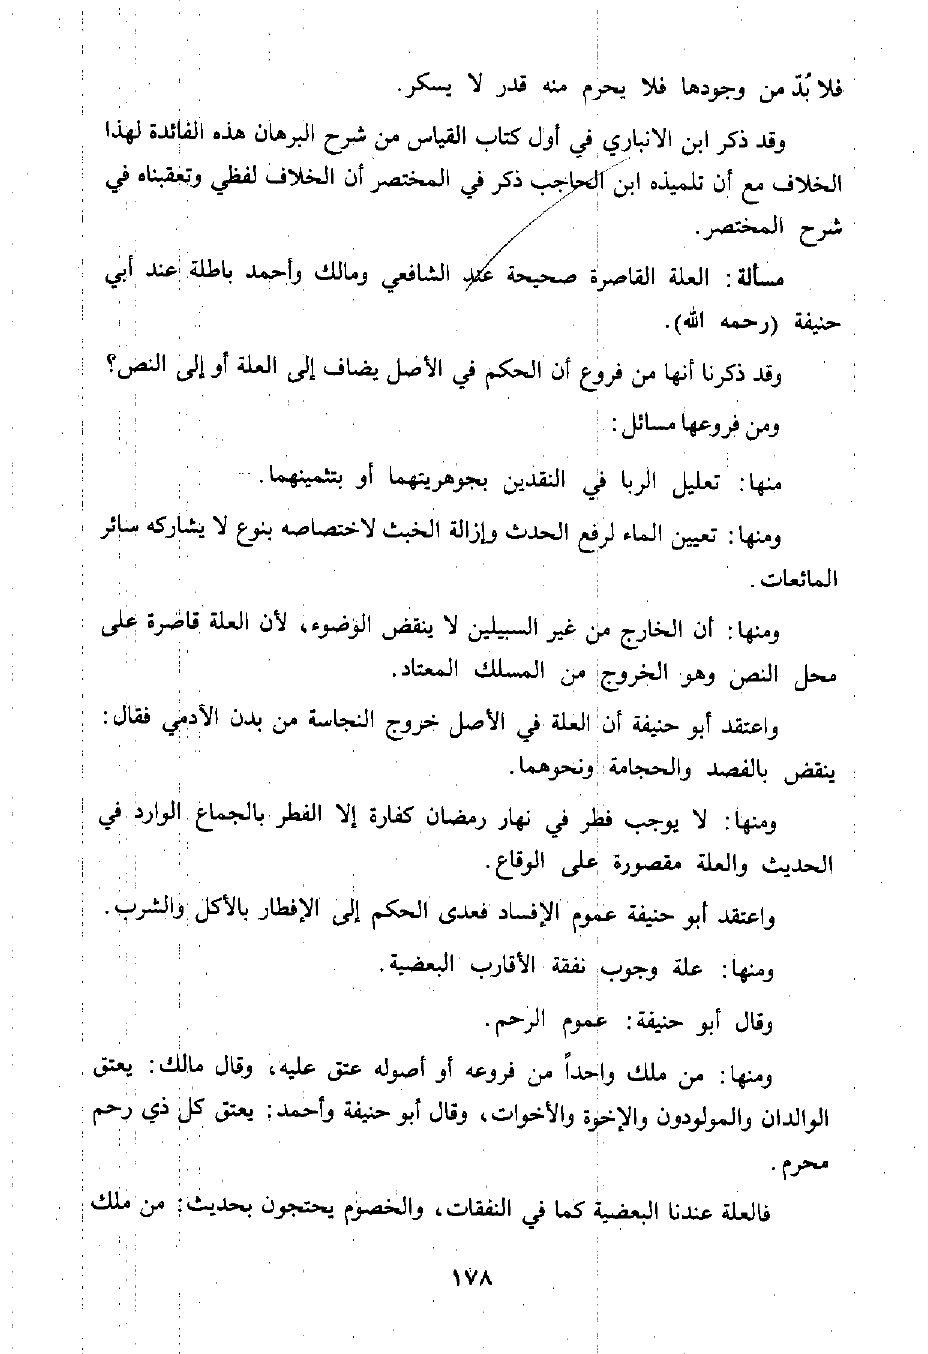 فلا بُدّ من وجودها فلا يحرم منه قدر لا يسكر.
وقد ذكر ابن الانباري في أول كتاب القياس من شرح البرهان هذه الفائدة لهذا
الخلاف مع أن تلميذه ابن الحاجب ذكر في المختصر أن الخلاف لفظي وتعقبناه في
شرح المختصر.
مسألة: العلة القاصرة صحيحة عند الشافعي ومالك وأحمد باطلة عند أبي
حنيفة (رحمه الله).
وقد ذكرنا أنها من فروع أن الحكم في الأصل يضاف إلى العلة أو إلى النص؟
ومن فروعها مسائل:
منها: تعليل الربا في النقدين بجوهريتهما أو بتثمينهما.
ومنها: تعيين الماء لرفع الحدث وإزالة الخبث لاختصاصه بنوع لا يشاركه سائر
المائعات.
ومنها: أن الخارج من غير السبيلين لا ينقض الوضوء، لأن العلة قاصرة على
محل النص وهو الخروج من المسلك المعتاد.
واعتقد أبو حنيفة أن العلة في الأصل خروج النجاسة من بدن الآدمي فقال:
ينقض بالفصد والحجامة ونحوهما.
ومنها: لا يوجب فطر في نهار رمضان كفارة إلا الفطر بالجماع الوارد في
الحديث والعلة مقصورة على الوقاع.
واعتقد أبو حنيفة عموم الإفساد فعدى الحكم إلى الإفطار بالأكل والشرب.
ومنها: علة وجوب نفقة الأقارب البعضية.
وقال أبو حنيفة: عموم الرحم.
ومنها: من ملك واحداً من فروعه أو أصوله عتق عليه، وقال مالك: يعتق
الوالدان والمولودون والإخوة والأخوات، وقال أبو حنيفة وأحمد: يعتق كل ذي رحم
محرم.
فالعلة عندنا البعضية كما في النفقات، والخصوم يحتجون بحديث: من ملك
١٧٨